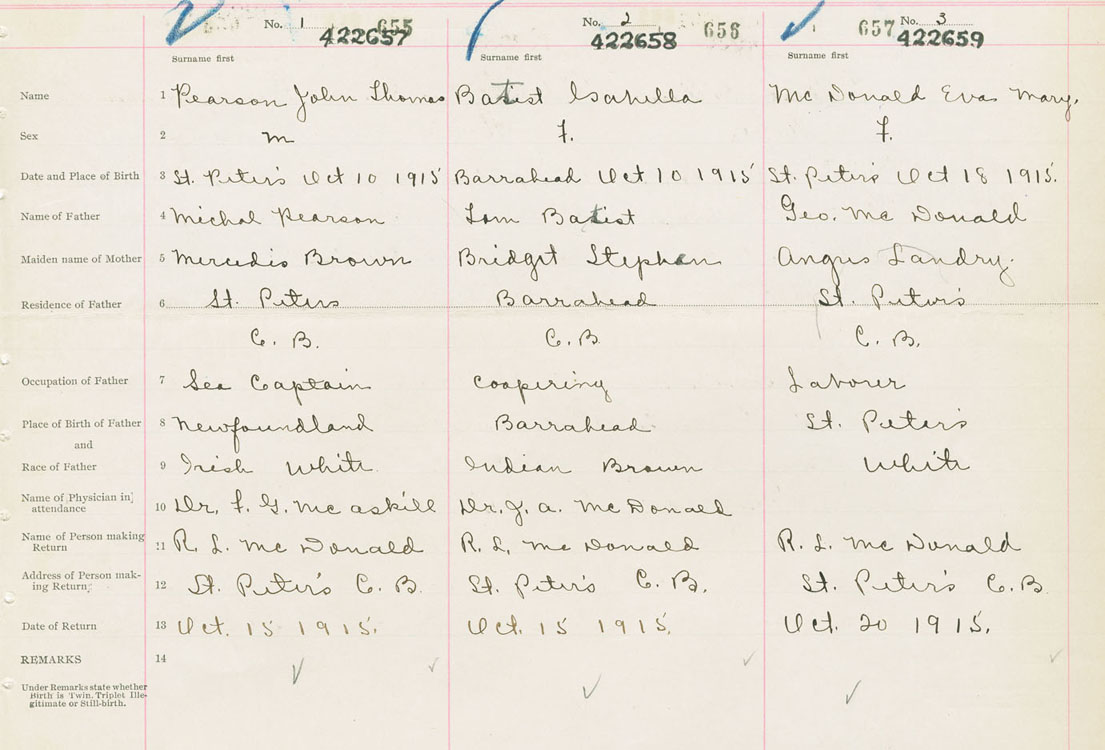 No. 1 655 No. 2 656 No. 3 657
422657 422658 422659
Surname first Surname first Surname first
Name 1 Pearson John Thomas Batist Isabella Mc Donald Eva Mary.
Sex 2 M F. F.
Date and Place of Birth 3 St. Peter's Oct 10 1915 Barrahead Oct 10 1915 St. Peter's Oct 18 1915.
Name of Father 4 Michal Pearson Tom Batist Geo. Mc Donald
Maiden name of Mother 5 Mercedis Brown Bridget Stephen Angus Landry.
Residence of Father 6 St. Peters Barrahead St. Peter's
C. B. C. B C. B.
Occupation of Father 7 Sea Captain Coopering Laborer
Place of Birth of Father 8 Newfoundland Barrahead St. Peter's
and
Race of Father 9 Irish White Indian Brown White
Name of Physician in attendance 10 Dr. F. G. McAskill Dr. J. A. McDonald
Name of Person making Return 11 R. L. Mc Donald R. L. Mc Donald R. L. Mc Donald
Address of Person making Return 12 St. Peter's C. B. St. Peter's C. B. St. Peter's C. B
Date of Return 13 Oct. 15 1915. Oct. 15 1915. Oct. 20 1915.
REMARKS 14
Under Remarks state whether
Birth is Twin, Triplet Ille-
gitimate or Still-birth.